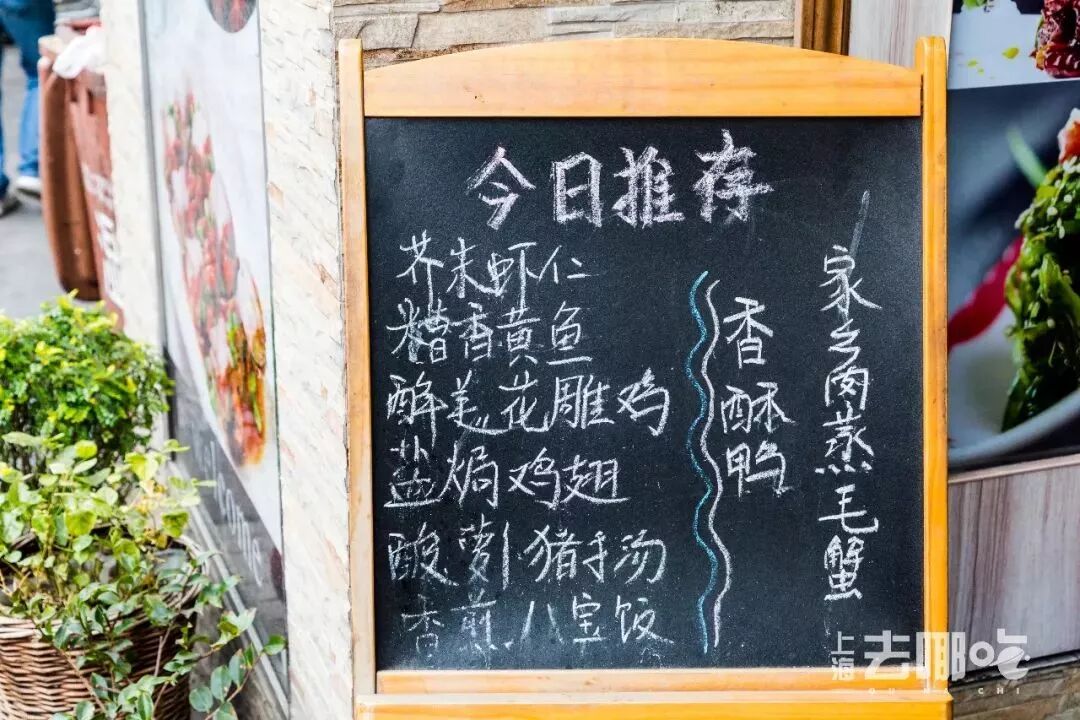 今日推荐
芥末虾仁
糟香黄鱼
醉美花雕鸡
盐焗鸡翅
酸萝卜猪手汤
香煎八宝饭
香酥鸭
家乡肉蒸毛蟹
上海去哪吃
QU NA CHI